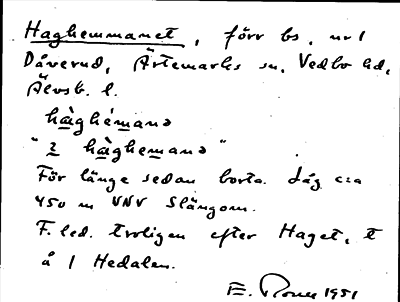 Haghemmanet, förr bs. nr 1
Dåverud, Ärtemarks sn, Vedbo hd,
Älvsb. l.
hàghémanə
"i hàghemanə"
För länge sedan borta. Låg c:a
450 m VNV Slängom.
F. led. troligen efter Haget, t
å 1 Hedalen.
E. 1951